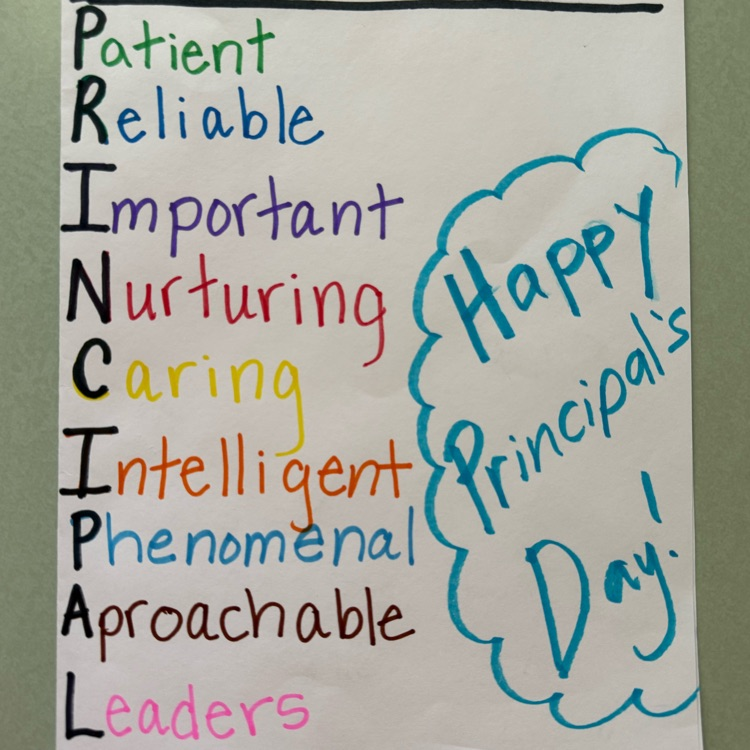 Patient
Reliable
Important
Nurturing
Caring
Intelligent
Phenomenal
Aproachable
Leaders
Happy
Principal's
Day!